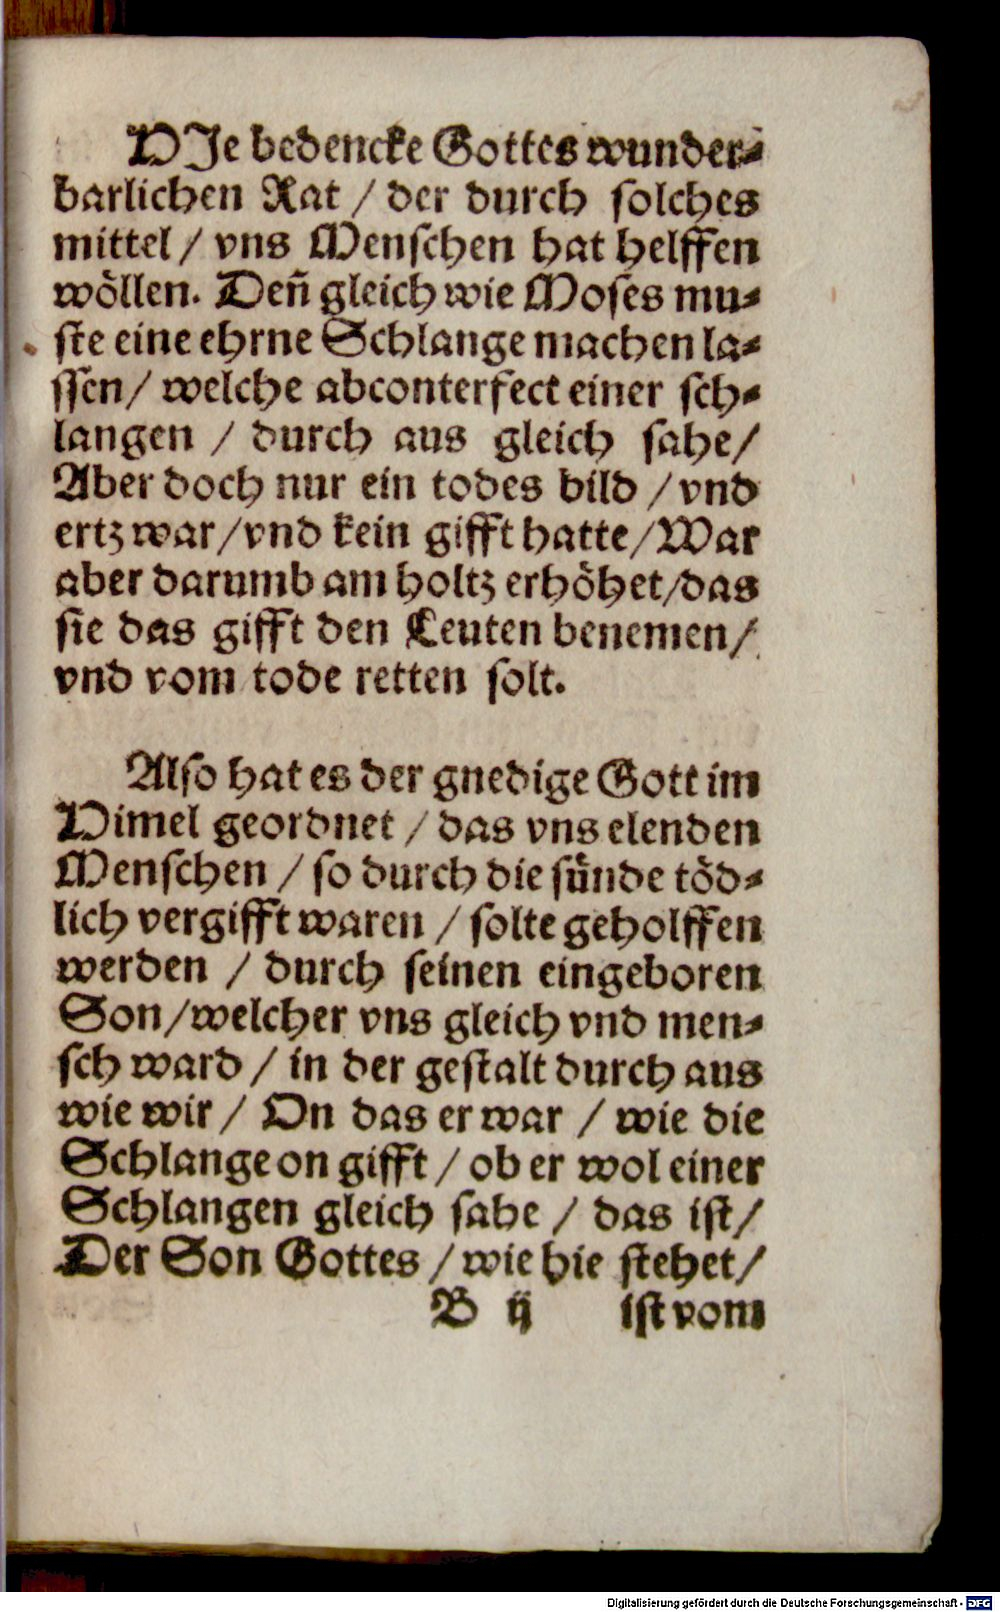 HIe bedencke Gottes wunder⸗
barlichen Rat / der durch solches
mittel / vns Menschen hat helffen
wöllen. Deñ gleich wie Moses mu⸗
ste eine ehrne Schlange machen la⸗
ssen / welche abconterfect einer sch⸗
langen / durch aus gleich sahe /
Aber doch nur ein todes bild / vnd
ertz war / vnd kein gifft hatte / War
aber darumb am holtz erhöhet / das
sie das gifft den Leuten benemen /
vnd vom tode retten solt.
Also hat es der gnedige Gott im
Himel geordnet / das vns elenden
Menschen / so durch die sünde töd⸗
lich vergifft waren / solte geholffen
werden / durch seinen eingeboren
Son / welcher vns gleich vnd men⸗
sch ward / in der gestalt durch aus
wie wir / On das er war / wie die
Schlange on gifft / ob er wol einer
Schlangen gleich sahe / das ist /
Der Son Gottes / wie hie stehet /
B ij ist vom
Digitalisierung gefördert durch die Deutsche Forschungsgemeinschaft - DFG